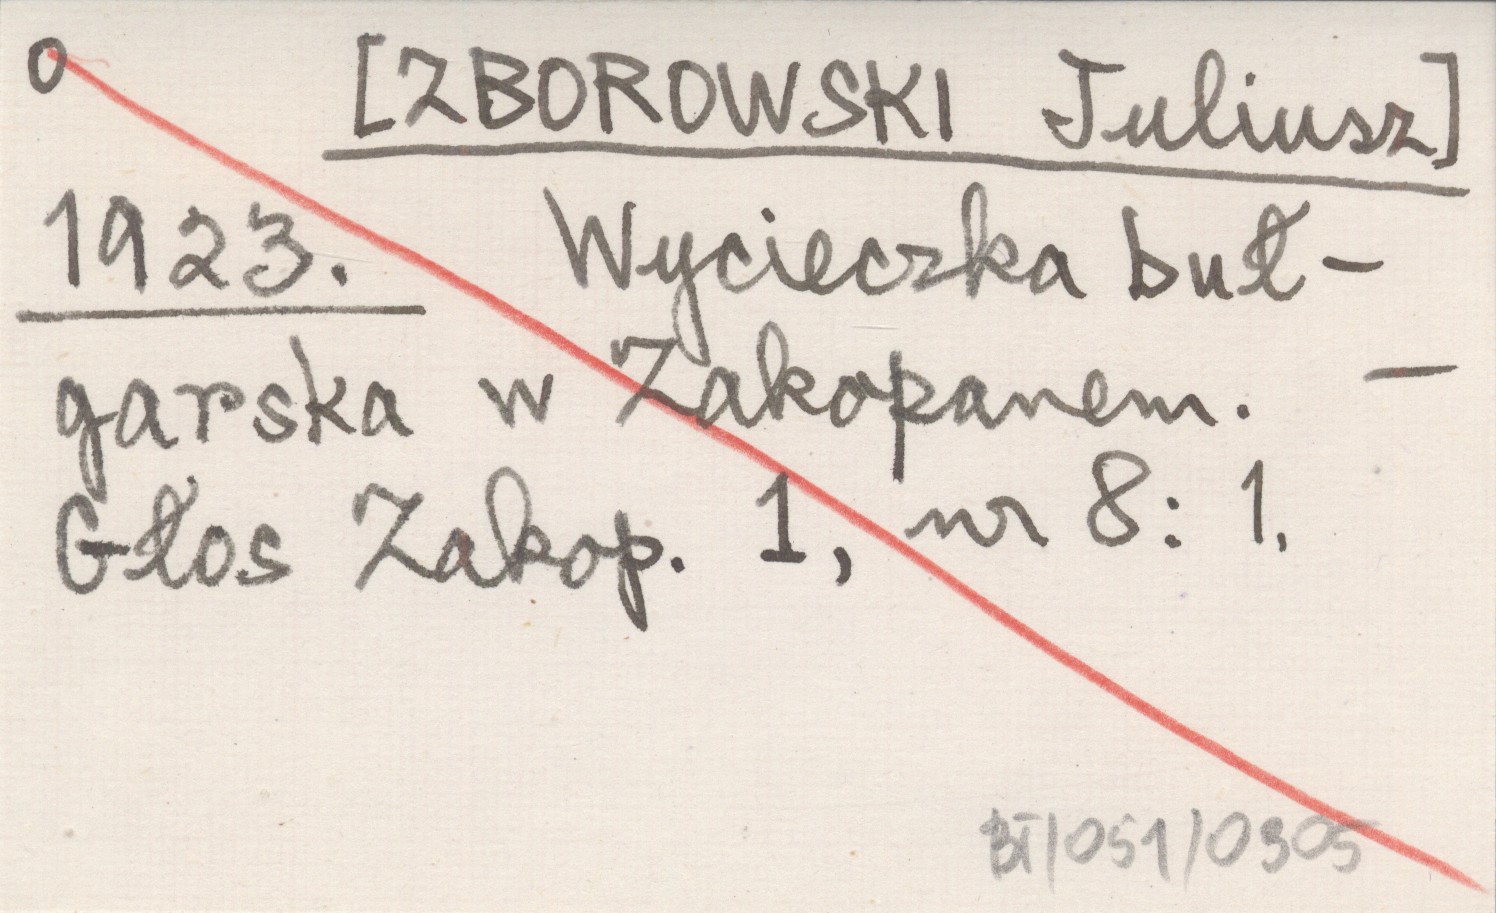 o [ZBOROWSKI Juliusz]
1923. Wycieczka buł-
garska w Zakopanem. –
Głos Zakop. 1, nr 8: 1.
BT/051/0305